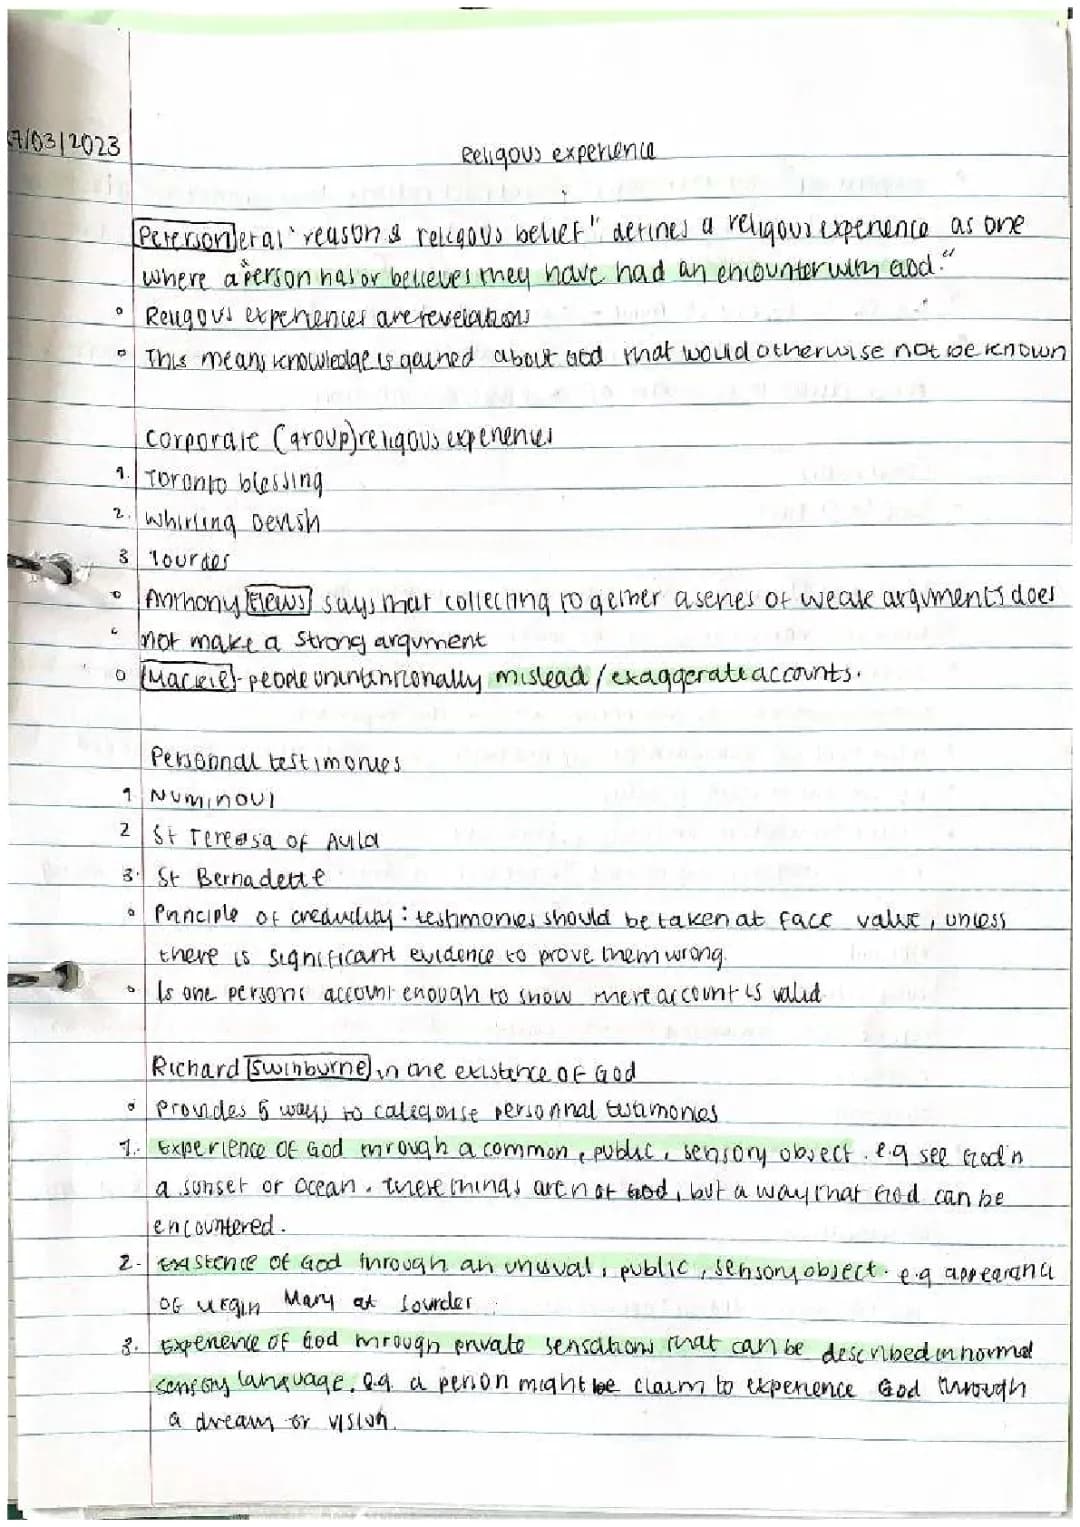 7/03/2023
Religous experience
Peterson et al "reason & religous belief" defines a religous experience as one
where a person has or believes they have had an encounter with God."
Religous experiences are revelations
This means knowledge is gained about God that would otherwise not be known
Corporate (group) religous experiences
1. Toronto blessing
2. Whirling Devish
3 lourdes
Anthony Flews says that collecting together a series of weak arguments does
not make a strong argument
Mackie - people unintentionally mislead / exaggerate accounts.
Personal testimonies
1 Numinous
2 St Teresa of Avila
3. St Bernadette
Principle of credulity: testimonies should be taken at face value, unless
there is significant evidence to prove them wrong.
Is one persons account enough to show there account is valid
Richard Swinburne in the existence of God
Provides 5 ways to categorise personnal testimonies
1. Experience of God through a common, public, sensory object. e.g see God in
a sunset or ocean. These things are not God, but a way that God can be
encountered.
2. Existence of God through an unusual, public, sensory object. e.g appearance
of Virgin Mary at Lourdes
3. Experience of God through private sensations that can be described in normal
sensory language. e.g. a person might be claim to experience God through
a dream or vision.